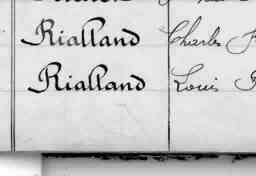 Rialland Charles
Rialland Louis